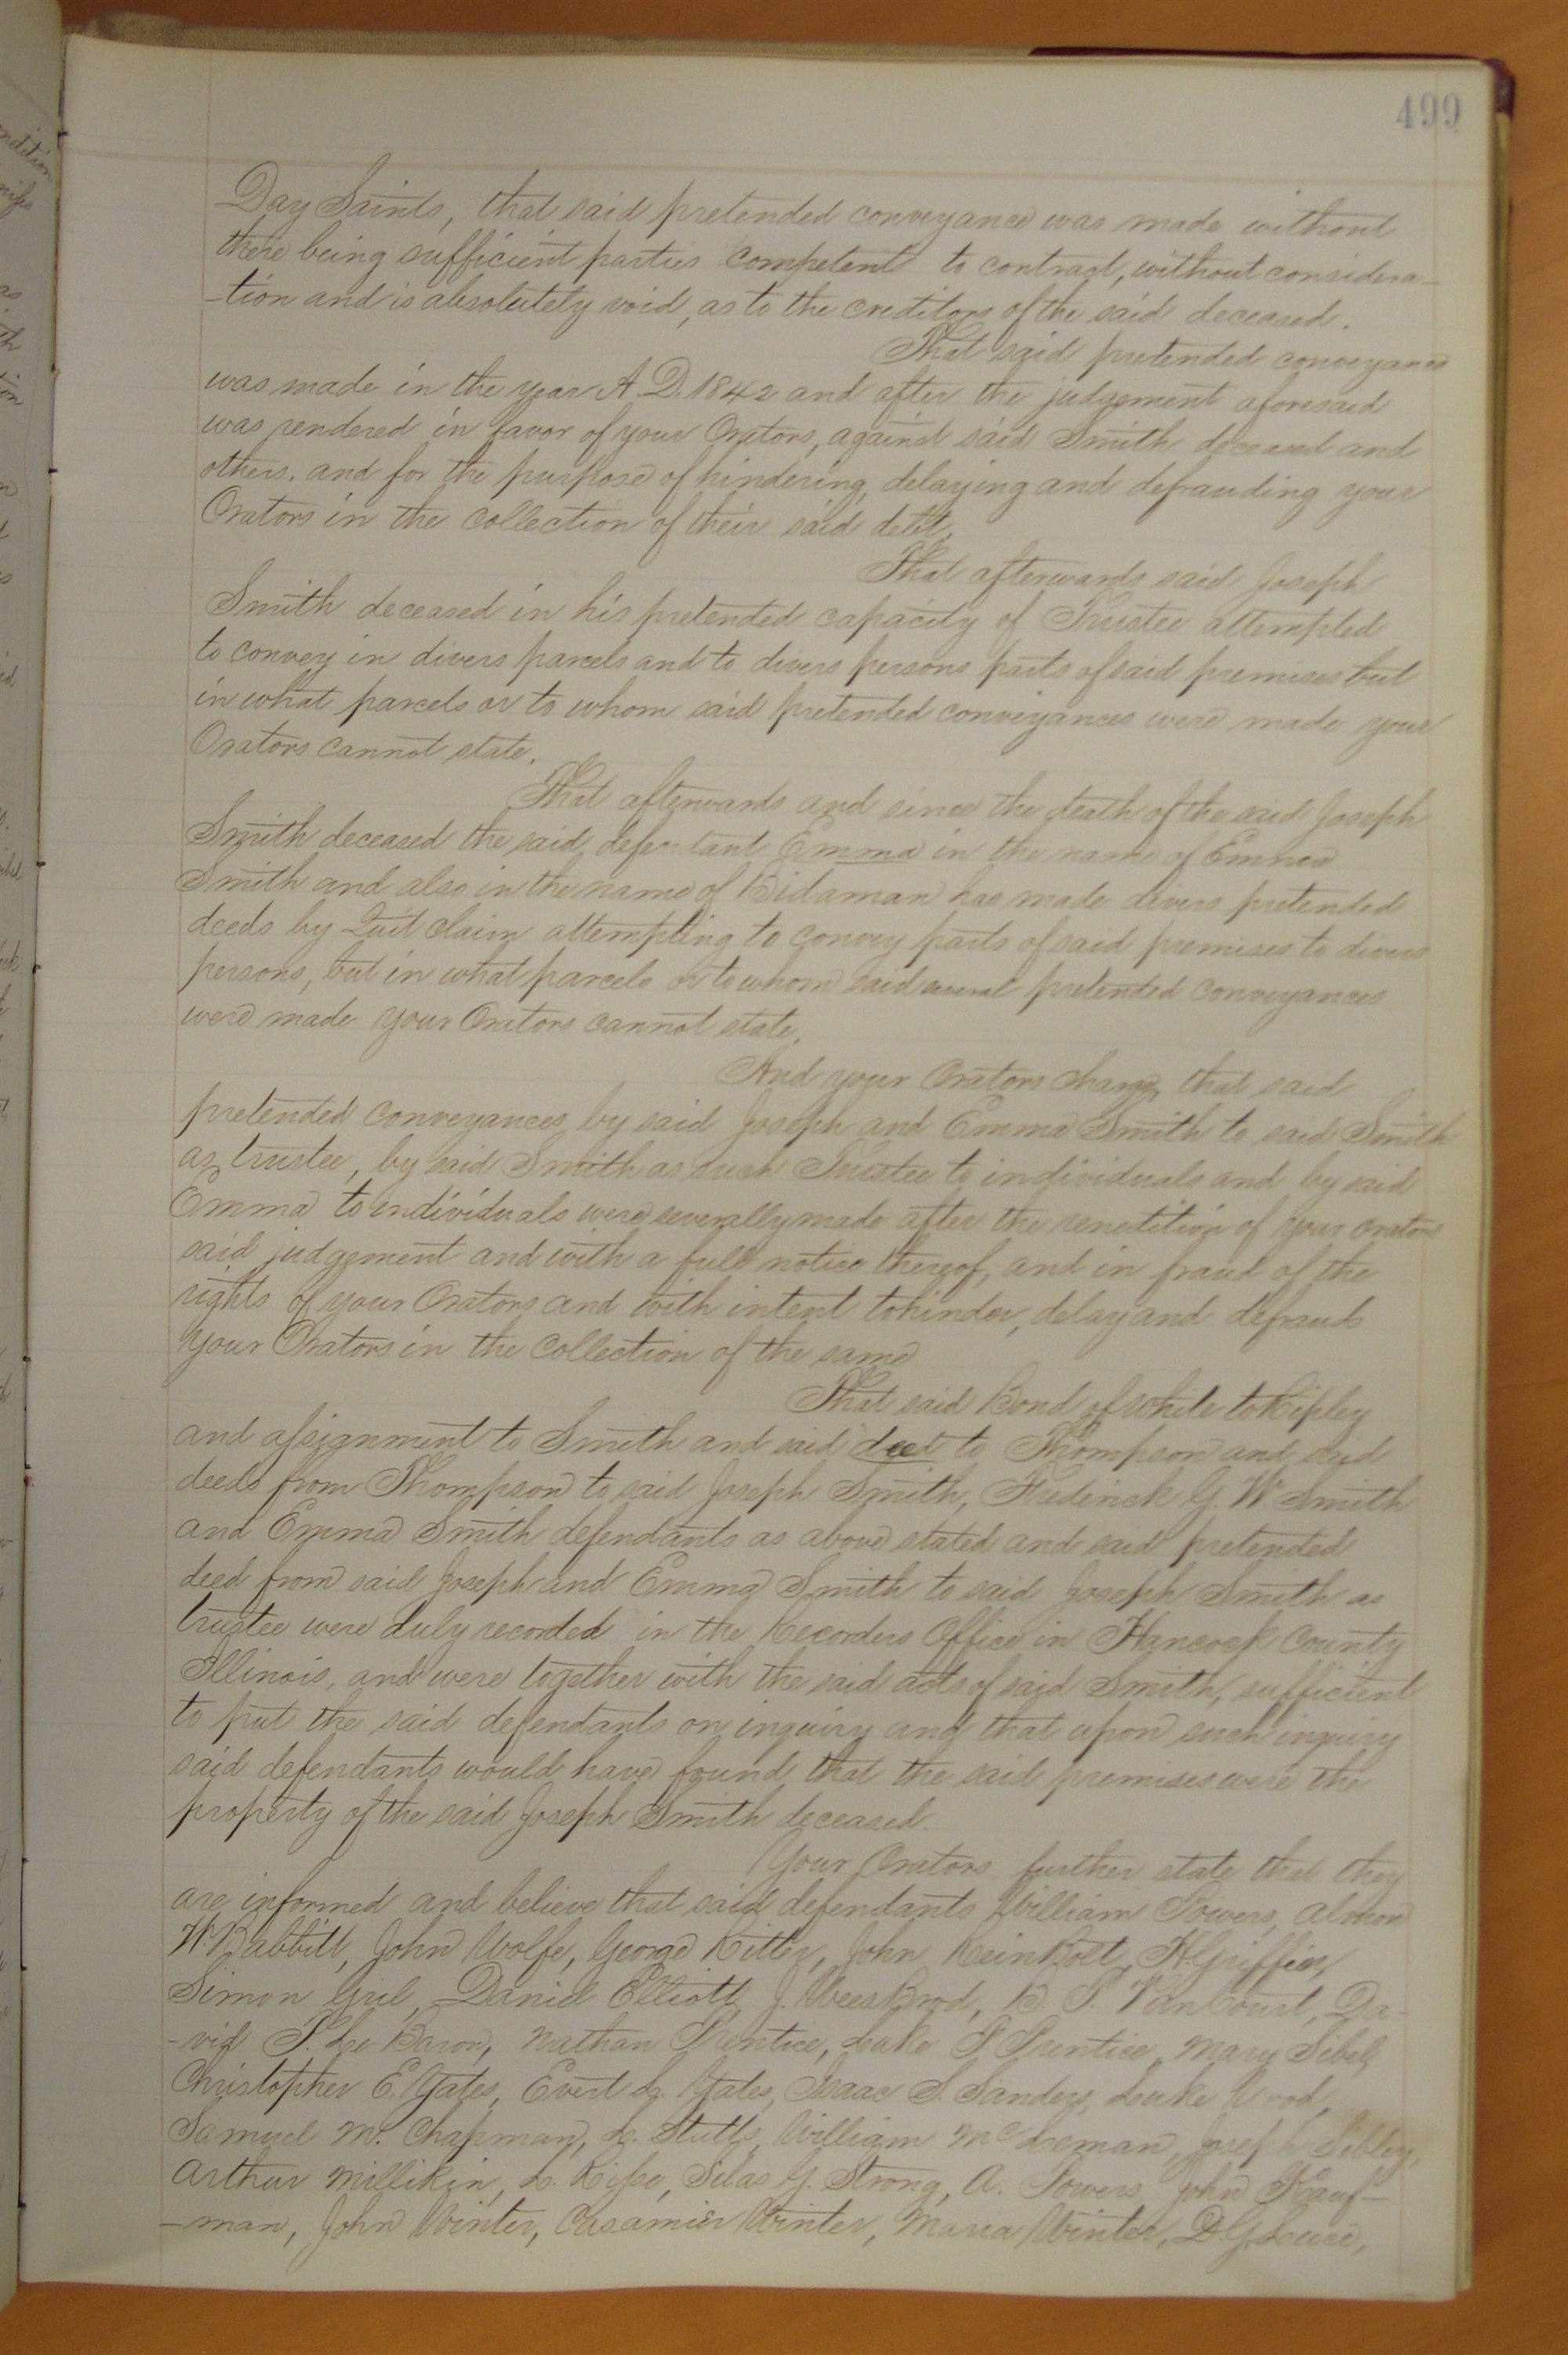 499
Day Saints, that said pretended conveyance was made without
there being sufficient parties competent to contract, without considera-
-tion and is absolutely void, as to the creditors of the said deceased.
That said pretended conveyance
was made in the year A.D. 1842 and after the judgement aforesaid
was rendered in favor of your Orators, against said Smith deceased and
others. and for the purpose of hindering, delaying and defrauding your
Orators in the collection of their said debt,
That afterwards said Joseph
Smith deceased in his pretended capacity of Trustee attempted
to convey in divers parcels and to divers persons parts of said premises but
in what parcels or to whom said pretended conveyances were made your
Orators cannot state.
That afterwards and since the death of the said Joseph
Smith deceased the said defendant Emma in the name of Emma
Smith and also in the name of Bidaman has made divers pretended
deeds by Quit claim attempting to convey parts of said premises to divers
persons, but in what parcels or to whom said several pretended conveyances
were made your Orators cannot state,
And your Orators charge, that said
pretended conveyances by said Joseph and Emma Smith to said Smith
as trustee, by said Smith as such Trustee to individuals and by said
Emma to individuals were severally made after the renditition of your orators
said judgement and with a full notice thereof, and in fraud of the
rights of your Orators and with intent to hinder, delay and defraud
your Orators in the collection of the same
That said Bond of White to Ripley
and assignment to Smith and said deed to Thompson and said
deeds from Thompson to said Joseph Smith, Frederick G. W Smith
and Emma Smith defendants as above stated and said pretended
deed from said Joseph and Emma Smith to said Joseph Smith as
trustee were duly recorded in the Recorders Office in Hancock County
Illinois, and were together with the said acts of said Smith, sufficient
to put the said defendants on inquiry and that upon such inquiry
said defendants would have found that the said premises were the
property of the said Joseph Smith deceased.
Your Orators further state that they
are informed and believe that said defendants William Powers, Almon
W Babbitt, John Wolfe, George Ritter, John Reinbolt, H. Griffin,
Simon Gril, Daniel Elliott, J. Weesbrod, B. S. Van Court, Da-
-vid S. Le Baron, Nathan Prentice, Luke P Prentice, Mary Sibel,
Christopher E. Yates, Evert L. Yates, Isaac S. Sanders, Luke Wood,
Samuel M. Chapman, L. Stults, William Mc Leman, Joseph Sibley,
Arthur Millikin, L. Risse, Silas G. Strong, A. Powers, John Kauf-
-man, John Winter, Casamier Winter, Maria Winter, D. G. Luce,